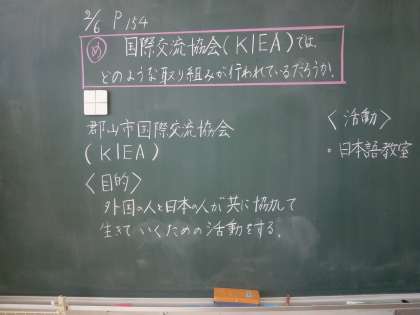 2/6 P154
め 国際交流協会(KIEA)では、
どのような取り組みが行われているだろうか。
郡山市国際交流協会
(KIEA)
〈目的〉
外国の人と日本の人が共に協力して
生きていくための活動をする。
〈活動〉
・日本語教室